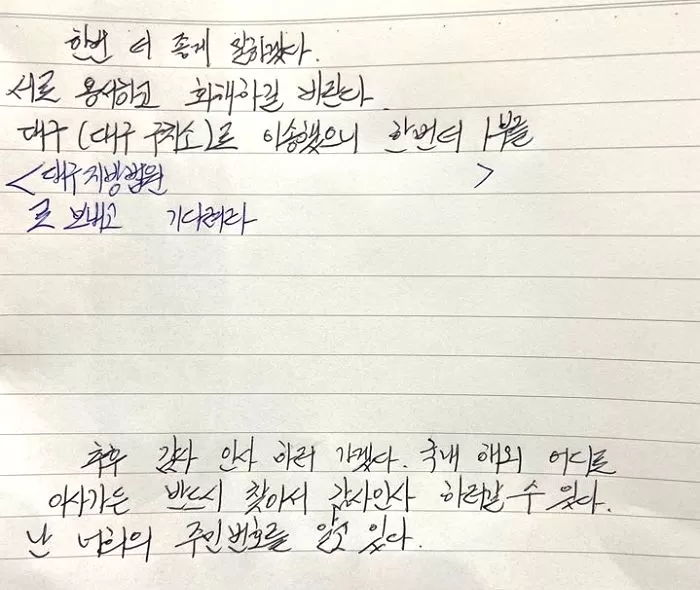 한번 더 좋게 말하겠다.
서로 용서하고 화해하길 바란다.
대구(대구 구치소)로 이송했으니 한번더 1부를
<대구지방법원 >
로 보내고 기다려라
추후 감사 인사 하러 가겠다. 국내 해외 어디로
이사가든 반드시 찾아서 감사인사 하러갈 수 있다.
난 너희의 주민번호를 알고 있다.